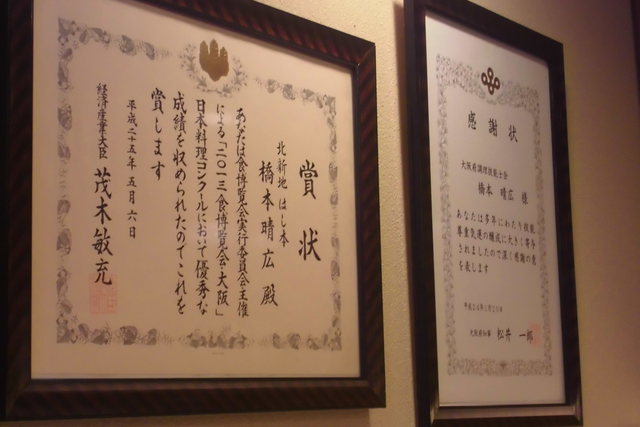 賞状
北新地 はし本
橋本晴広 殿
あなたは食博覧会実行委員会主催
による「二〇一三食博覧会・大阪」
日本料理コンクールにおいて優秀な
成績を収められたのでこれを
賞します
平成二十五年五月六日
経済産業大臣 茂木敏充
感謝状
大阪府調理技能士会
橋本晴広 様
あなたは多年にわたり技能
尊重気運の醸成に大きく寄与
されましたので深く感謝の意
を表します
大阪府知事 松井一郎